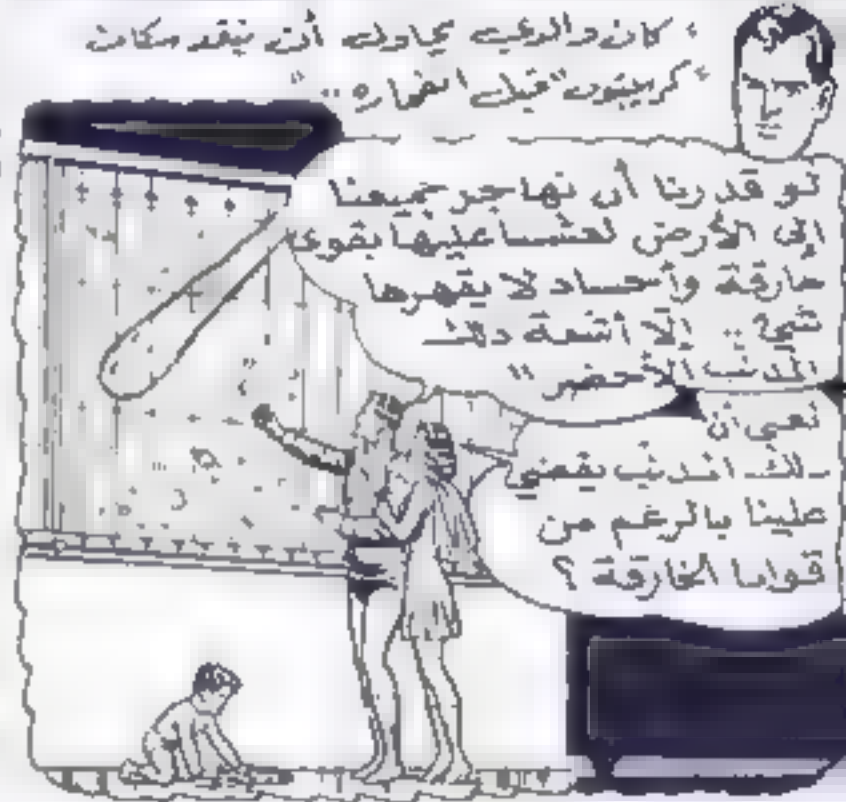 "كان والدي يحاول أن ينقذ سكان
"كريبتون" قبل انفجاره.."
لو قدرنا أن نهاجر جميعنا
إلى الأرض لعشنا عليها بقوى
خارقة وأجساد لا يقهرها
شيء.. إلا أشعة ذلك
المذنب الأخضر"
تعني أن
ذلك المذنب يقضي
علينا بالرغم من
قوانا الخارقة ؟